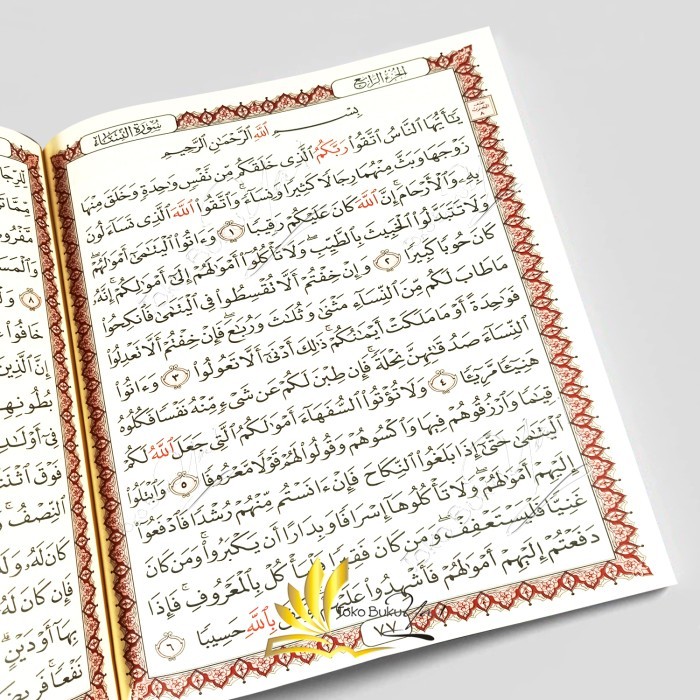 الجزء الرابع
سورة النساء
بِسْمِ ٱللَّهِ ٱلرَّحْمَٰنِ ٱلرَّحِيمِ
يَٰٓأَيُّهَا ٱلنَّاسُ ٱتَّقُوا۟ رَبَّكُمُ ٱلَّذِى خَلَقَكُم مِّن نَّفْسٍ وَٰحِدَةٍ وَخَلَقَ مِنْهَا
زَوْجَهَا وَبَثَّ مِنْهُمَا رِجَالًا كَثِيرًا وَنِسَآءً ۚ وَٱتَّقُوا۟ ٱللَّهَ ٱلَّذِى تَسَآءَلُونَ
بِهِۦ وَٱلْأَرْحَامَ ۚ إِنَّ ٱللَّهَ كَانَ عَلَيْكُمْ رَقِيبًا ١ وَءَاتُوا۟ ٱلْيَتَٰمَىٰٓ أَمْوَٰلَهُمْ ۖ
وَلَا تَتَبَدَّلُوا۟ ٱلْخَبِيثَ بِٱلطَّيِّبِ ۖ وَلَا تَأْكُلُوٓا۟ أَمْوَٰلَهُمْ إِلَىٰٓ أَمْوَٰلِكُمْ ۚ إِنَّهُۥ
كَانَ حُوبًا كَبِيرًا ٢ وَإِنْ خِفْتُمْ أَلَّا تُقْسِطُوا۟ فِى ٱلْيَتَٰمَىٰ فَٱنكِحُوا۟
مَا طَابَ لَكُم مِّنَ ٱلنِّسَآءِ مَثْنَىٰ وَثُلَٰثَ وَرُبَٰعَ ۖ فَإِنْ خِفْتُمْ أَلَّا تَعْدِلُوا۟
فَوَٰحِدَةً أَوْ مَا مَلَكَتْ أَيْمَٰنُكُمْ ۚ ذَٰلِكَ أَدْنَىٰٓ أَلَّا تَعُولُوا۟ ٣ وَءَاتُوا۟
ٱلنِّسَآءَ صَدُقَٰتِهِنَّ نِحْلَةً ۚ فَإِن طِبْنَ لَكُمْ عَن شَىْءٍ مِّنْهُ نَفْسًا فَكُلُوهُ
هَنِيٓـًٔا مَّرِيٓـًٔا ٤ وَلَا تُؤْتُوا۟ ٱلسُّفَهَآءَ أَمْوَٰلَكُمُ ٱلَّتِى جَعَلَ ٱللَّهُ لَكُمْ
قِيَٰمًا وَٱرْزُقُوهُمْ فِيهَا وَٱكْسُوهُمْ وَقُولُوا۟ لَهُمْ قَوْلًا مَّعْرُوفًا ٥ وَٱبْتَلُوا۟
ٱلْيَتَٰمَىٰ حَتَّىٰٓ إِذَا بَلَغُوا۟ ٱلنِّكَاحَ فَإِنْ ءَانَسْتُم مِّنْهُمْ رُشْدًا فَٱدْفَعُوٓا۟
إِلَيْهِمْ أَمْوَٰلَهُمْ ۖ وَلَا تَأْكُلُوهَآ إِسْرَافًا وَبِدَارًا أَن يَكْبَرُوا۟ ۚ وَمَن كَانَ
غَنِيًّا فَلْيَسْتَعْفِفْ ۖ وَمَن كَانَ فَقِيرًا فَلْيَأْكُلْ بِٱلْمَعْرُوفِ ۚ فَإِذَا
دَفَعْتُمْ إِلَيْهِمْ أَمْوَٰلَهُمْ فَأَشْهِدُوا۟ عَلَيْهِمْ ۚ وَكَفَىٰ بِٱللَّهِ حَسِيبًا ٦
٧٧
Toko Buku
مَّفْرُو
وَٱلْمَس
٨
خَافُوا۟
إِنَّ ٱلَّذِينَ
بُطُونِهِمْ
فَوْقَ ٱثْنَتَ
ٱلنِّصْفُ ۚ
كَانَ لَهُۥ
فَإِن كَانَ لَهُ
بِهَآ أَوْ دَيْنٍ ۗ
نَفْعًا ۚ فَرِيضَ